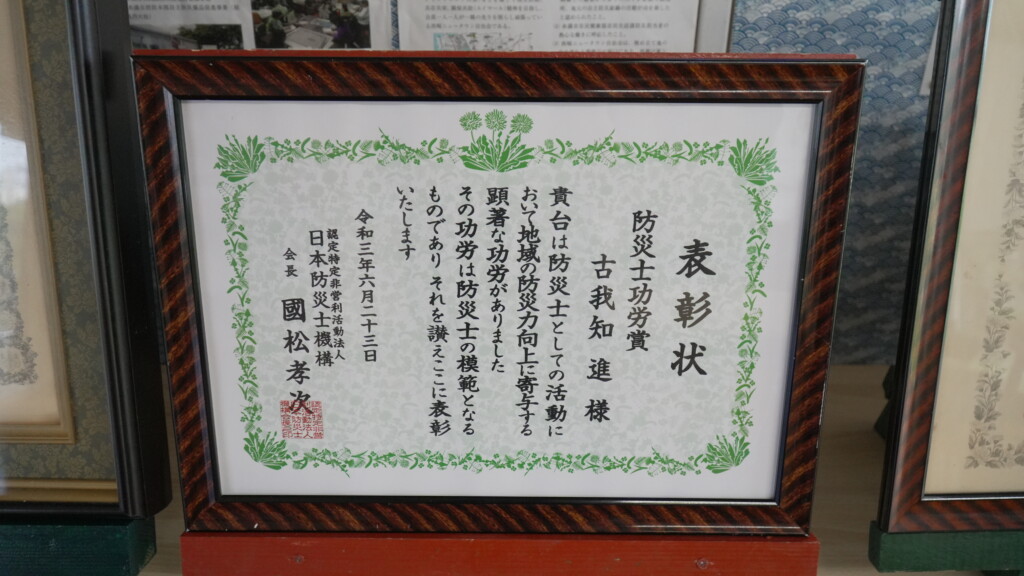 表彰状
防災士功労賞
古我知 進 様
貴台は防災士としての活動に
おいて地域の防災力向上に寄与する
顕著な功労がありました
その功労は防災士の模範となる
ものであり それを讃えここに表彰
いたします
令和三年六月二十三日
認定特定非営利活動法人
日本防災士機構
会長 國松孝次